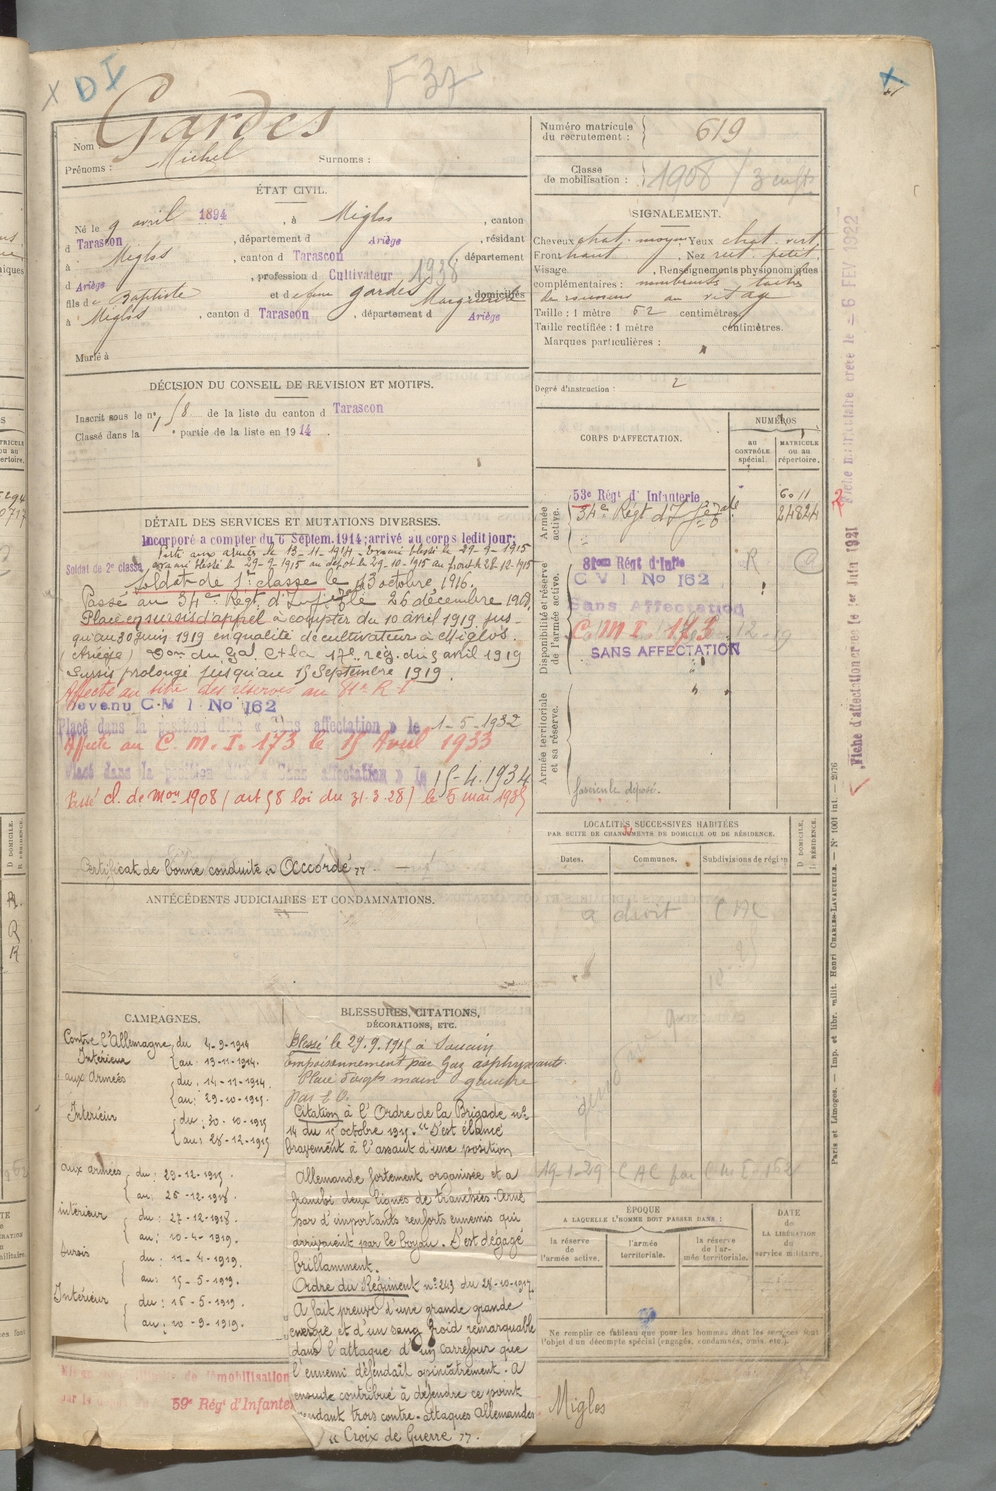 D I
F 37
Nom Gardes
Prénoms : Michel Surnoms :
ÉTAT CIVIL.
Né le 9 avril 1894, à Miglos, canton
d Tarascon, département d Ariège, résidant
à Miglos, canton d Tarascon, département
d Ariège, profession d Cultivateur 1938
fils de Baptiste et de feue Gardes Marguerite domiciliés
à Miglos, canton d Tarascon, département d Ariège
Marié à
DÉCISION DU CONSEIL DE RÉVISION ET MOTIFS.
Inscrit sous le n° 58 de la liste du canton d Tarascon
Classé dans la 1 partie de la liste en 1914.
DÉTAIL DES SERVICES ET MUTATIONS DIVERSES.
Incorporé à compter du 6 Septem. 1914; arrivé au corps ledit jour;
Soldat de 2e classe
Parti aux armées le 13-11-1914. Evacué blessé le 29-9-1915
au dépôt le 29-10-1915 au front le 28-12-1915
Soldat de 1re classe le 13 octobre 1916.
Passé au 34e Régt d'Infie le 26 décembre 1918,
Placé en sursis d'appel à compter du 10 avril 1919 jus-
qu'au 30 juin 1919 en qualité de cultivateur à Miglos.
(Ariège) Don du Gal Ct la 17e rég. du 5 avril 1919
Sursis prolongé jusqu'au 15 Septembre 1919.
Affecté au titre des réserves au 81e R I
Devenu C M I No 162
Placé dans la position dite « Sans affectation » le 1-5-1932
Affecté au C. M. I. 173 le 15 Avril 1933
Placé dans la position dite « Sans affectation » le 15-4-1934
Passé cl. de mon 1908 (art 58 loi du 31-3-28) le 5 mai 1935
Certificat de bonne conduite « Accordé »
ANTÉCÉDENTS JUDICIAIRES ET CONDAMNATIONS.
CAMPAGNES.
Contre l'Allemagne du 4-9-1914
Intérieur au : 13-11-1914.
aux Armées du : 14-11-1914.
au : 29-10-1915.
Intérieur du : 30-10-1915
au : 28-12-1915
aux armées du : 29-12-1915.
au : 26-12-1918.
intérieur du : 27-12-1918.
au : 10-4-1919.
Sursis du : 11-4-1919.
au : 15-5-1919.
Intérieur du : 16-5-1919.
au : 10-9-1919.
par le
59e Régt d'Infanterie
BLESSURES, CITATIONS,
DÉCORATIONS, ETC.
Blessé le 29.9.1915 à Souain
Empoisonnement par Gaz asphyxiants
Plaie doigts main gauche
par E. O.
Citation à l'Ordre de la Brigade n°
14 du 15 octobre 1915. "S'est élancé
bravement à l'assaut d'une position
Allemande fortement organisée et a
franchi deux lignes de tranchées. Arrêté
par d'importants renforts ennemis qui
arrivaient par le boyau. S'est dégagé
brillamment.
Ordre du Régiment n° 249 du 28-10-1917
A fait preuve d'une grande grande
énergie et d'un sang froid remarquable
dans l'attaque d'un carrefour que
l'ennemi défendait opiniâtrement. A
ensuite contribué à défendre ce point
pendant trois contre-attaques Allemandes
« Croix de Guerre ».
Numéro matricule du recrutement : 619
Classe de mobilisation : 1908
SIGNALEMENT.
Cheveux chat. moyen Yeux chat. vert
Front haut, Nez rect. petit
Visage, Renseignements physionomiques
complémentaires : nombreuses taches
de rousseur au visage
Taille : 1 mètre 62 centimètres.
Taille rectifiée : 1 mètre centimètres.
Marques particulières :
Degré d'instruction : 2
CORPS D'AFFECTATION.
NUMÉROS
AU CONTRÔLE spécial.
MATRICULE OU AU répertoire.
Armée active.
53e Régt d'Infanterie 6011
34e Régt d'Infie 24824
Disponibilité et réserve de l'armée active.
81eme Régt d'Infie R
C V I No 162
Sans Affectation
C. M. I. 173
SANS AFFECTATION
Armée territoriale et sa réserve.
fascicule déposé.
LOCALITÉS SUCCESSIVES HABITÉES
PAR SUITE DE CHANGEMENTS DE DOMICILE OU DE RÉSIDENCE.
Dates. Communes. Subdivisions de région
D DOMICILE. R RÉSIDENCE.
a droit CAC
19-1-29 CAC par CMI 162
ÉPOQUE
A LAQUELLE L'HOMME DOIT PASSER DANS :
la réserve de l'armée active.
l'armée territoriale.
la réserve de l'armée territoriale.
DATE de LA LIBÉRATION du service militaire.
Ne remplir ce tableau que pour les hommes dont les services font
l'objet d'un décompte spécial (engagés, condamnés, omis, etc.).
Miglos
Fiche matriculaire créée le 6 FEV 1922
Fiche d'affectation créée le 1er Juin 1921
Paris et Limoges. — Imp. et libr. milit. Henri CHARLES-LAVAUZELLE. — N° 1001 int. — 2976